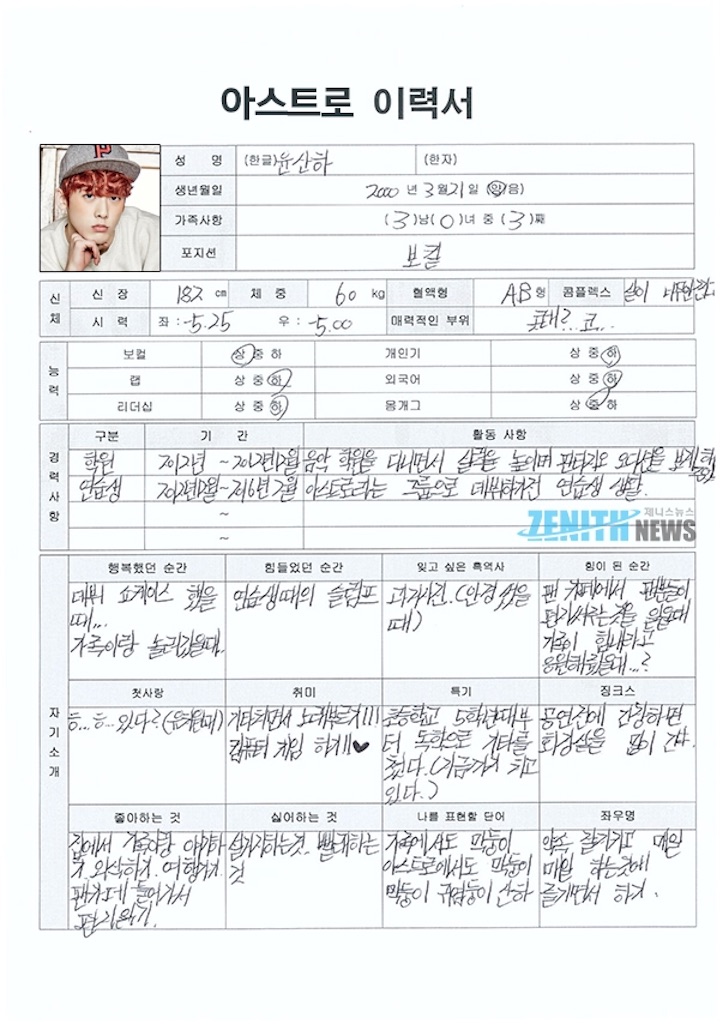 아스트로 이력서
성 명 (한글)윤산하 (한자)
생년월일 2000 년 3월 21일 (양/음)
가족사항 (3)남(0)녀 중 (3)째
포지션 보컬
신체 신 장 182 cm 체 중 60 kg 혈액형 AB형 콤플렉스 살이
시 력 좌 : -5.25 우 : -5.00 매력적인 부위 코...
능력 보컬 상 중 하 개인기 상 중 하
랩 상 중 하 외국어 상 중 하
리더십 상 중 하 몸개그 상 중 하
경력사항 구분 기 간 활동 사항
학원 2012년 ~ 2012년12월 음악 학원을 다니면서 실력을 높이며 판타지오 오디션을 보게
연습생 2012년12월 ~ 2016년 2월 아스트로라는 그룹으로 데뷔하기전 연습생 생활.
~
~
ZENITH NEWS 제니스뉴스
자기소개
행복했던 순간 힘들었던 순간 잊고 싶은 흑역사 힘이 된 순간
데뷔 쇼케이스 했을
때...
가족이랑 놀러갔을때..
연습생때의 슬럼프
과거사진.(안경 썼을
때)
팬 카페에서 팬분들이
편지써주는것을 읽을때
가족이 힘내라고
응원해줬을때...?
첫사랑 취미 특기 징크스
음...음...있다?(유치원때)
기타치면서 노래부르기!!!
컴퓨터 게임 하기!!♥
초등학교 5학년때부
터 독학으로 기타를
쳤다.(지금까지 치고
있다.)
공연전에 긴장하면
화장실을 많이 간다.
좋아하는 것 싫어하는 것 나를 표현할 단어 좌우명
집에서 가족이랑 이야기하
기, 외식하기, 여행가기
팬카페 들어가서
편지읽기.
설거지하는것. 빨래하는
것
가족에서도 막둥이
아스트로에서도 막둥이
막둥이 귀염둥이 산하
약속 잘지키고 매일
매일 하는것에
즐기면서 하기.